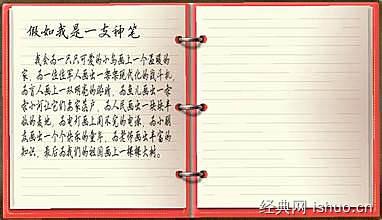 假如我是一支神笔
我会为一只只可爱的小鸟画上一个温暖的
家，为一位位军人画出一架架现代化的战斗机，
为盲人画上一双明亮的眼睛，为鱼儿画出一条
条小河让它们安家落户，为人民画出一块块丰
收的麦地，为电灯画上用不完的电源，为小朋
友画出一个个快乐的童年，为老师画出丰富的
知识，最后为我们的祖国画上一棵棵大树。
经典网 ishuo.cn